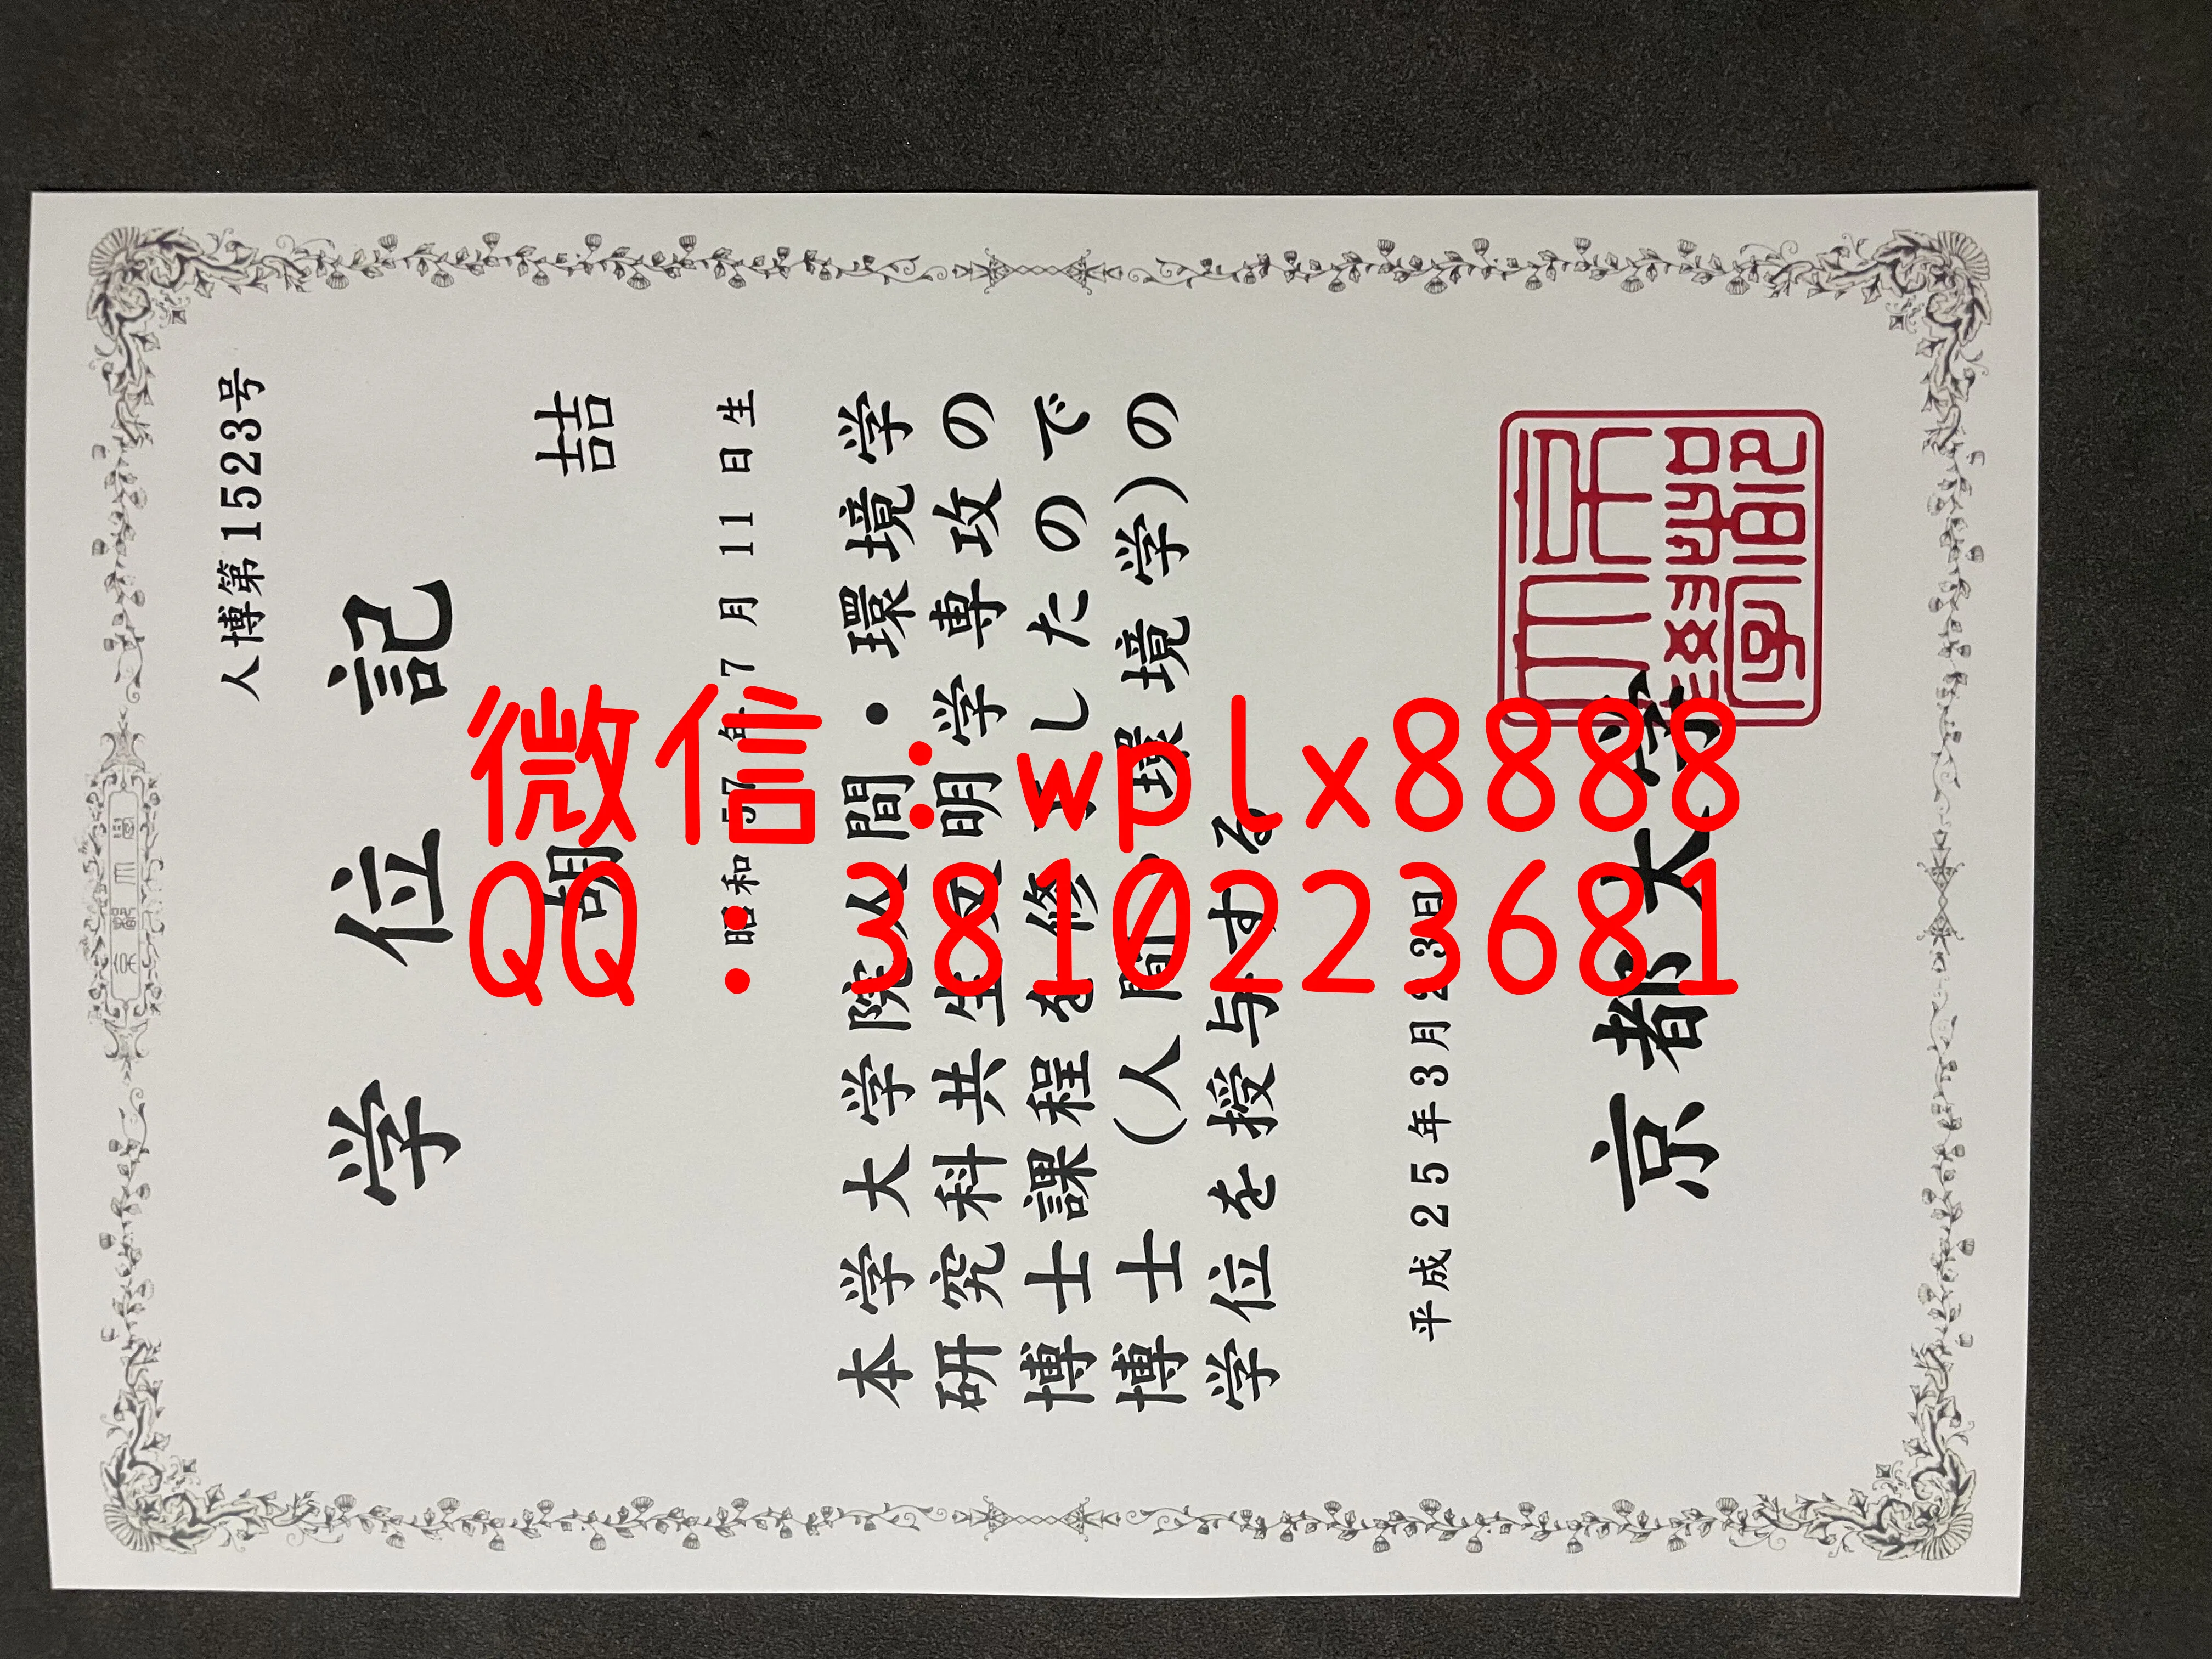 人博第1523号
学位記
胡 喆
昭和57年7月11日生
本学大学院人間・環境学
研究科共生文明学専攻の
博士課程を修了したので
博士(人間・環境学)の
学位を授与する
平成25年3月23日
京都大学
京都大學
微信：wplx8888
QQ：3810223681